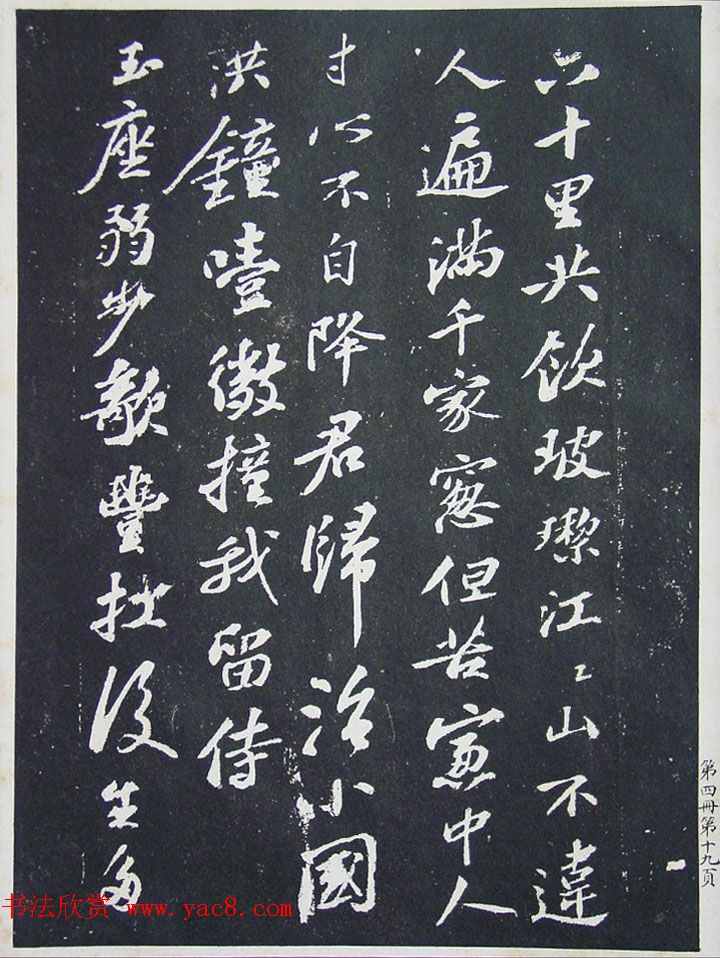 六十里共飲玻瓈江〻山不違
人遍滿千家窻但苦窻中人
寸心不自降君歸治小國
洪鐘噎微撞我留侍
玉座弱步欹豐扛後生多
第四冊第十九頁
书法欣赏 www.yac8.com